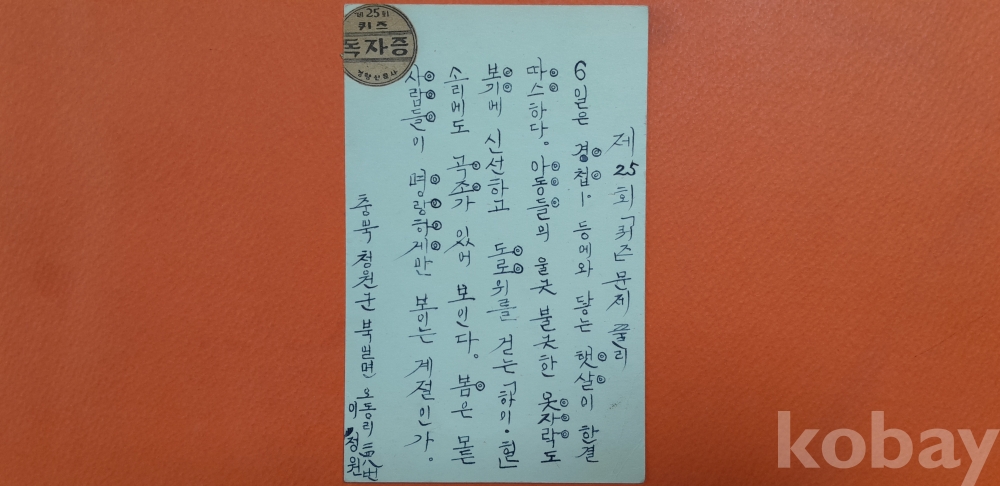 제25회
퀴즈
독자증
경향신문사
제25회 「퀴즈」 문제 풀리
6일은 경칩— 등에와 닿는 햇살이 한결
따스하다。 아동들의 울긋불긋한 옷자락도
보기에 신선하고 도로위를 걷는 「하이·힐」
소리에도 곡조가 있어 보인다。 봄은 모든
사람들이 명랑하게만 보이는 계절인가。
충북 청원군 북일면 오동리
이정원
kobay